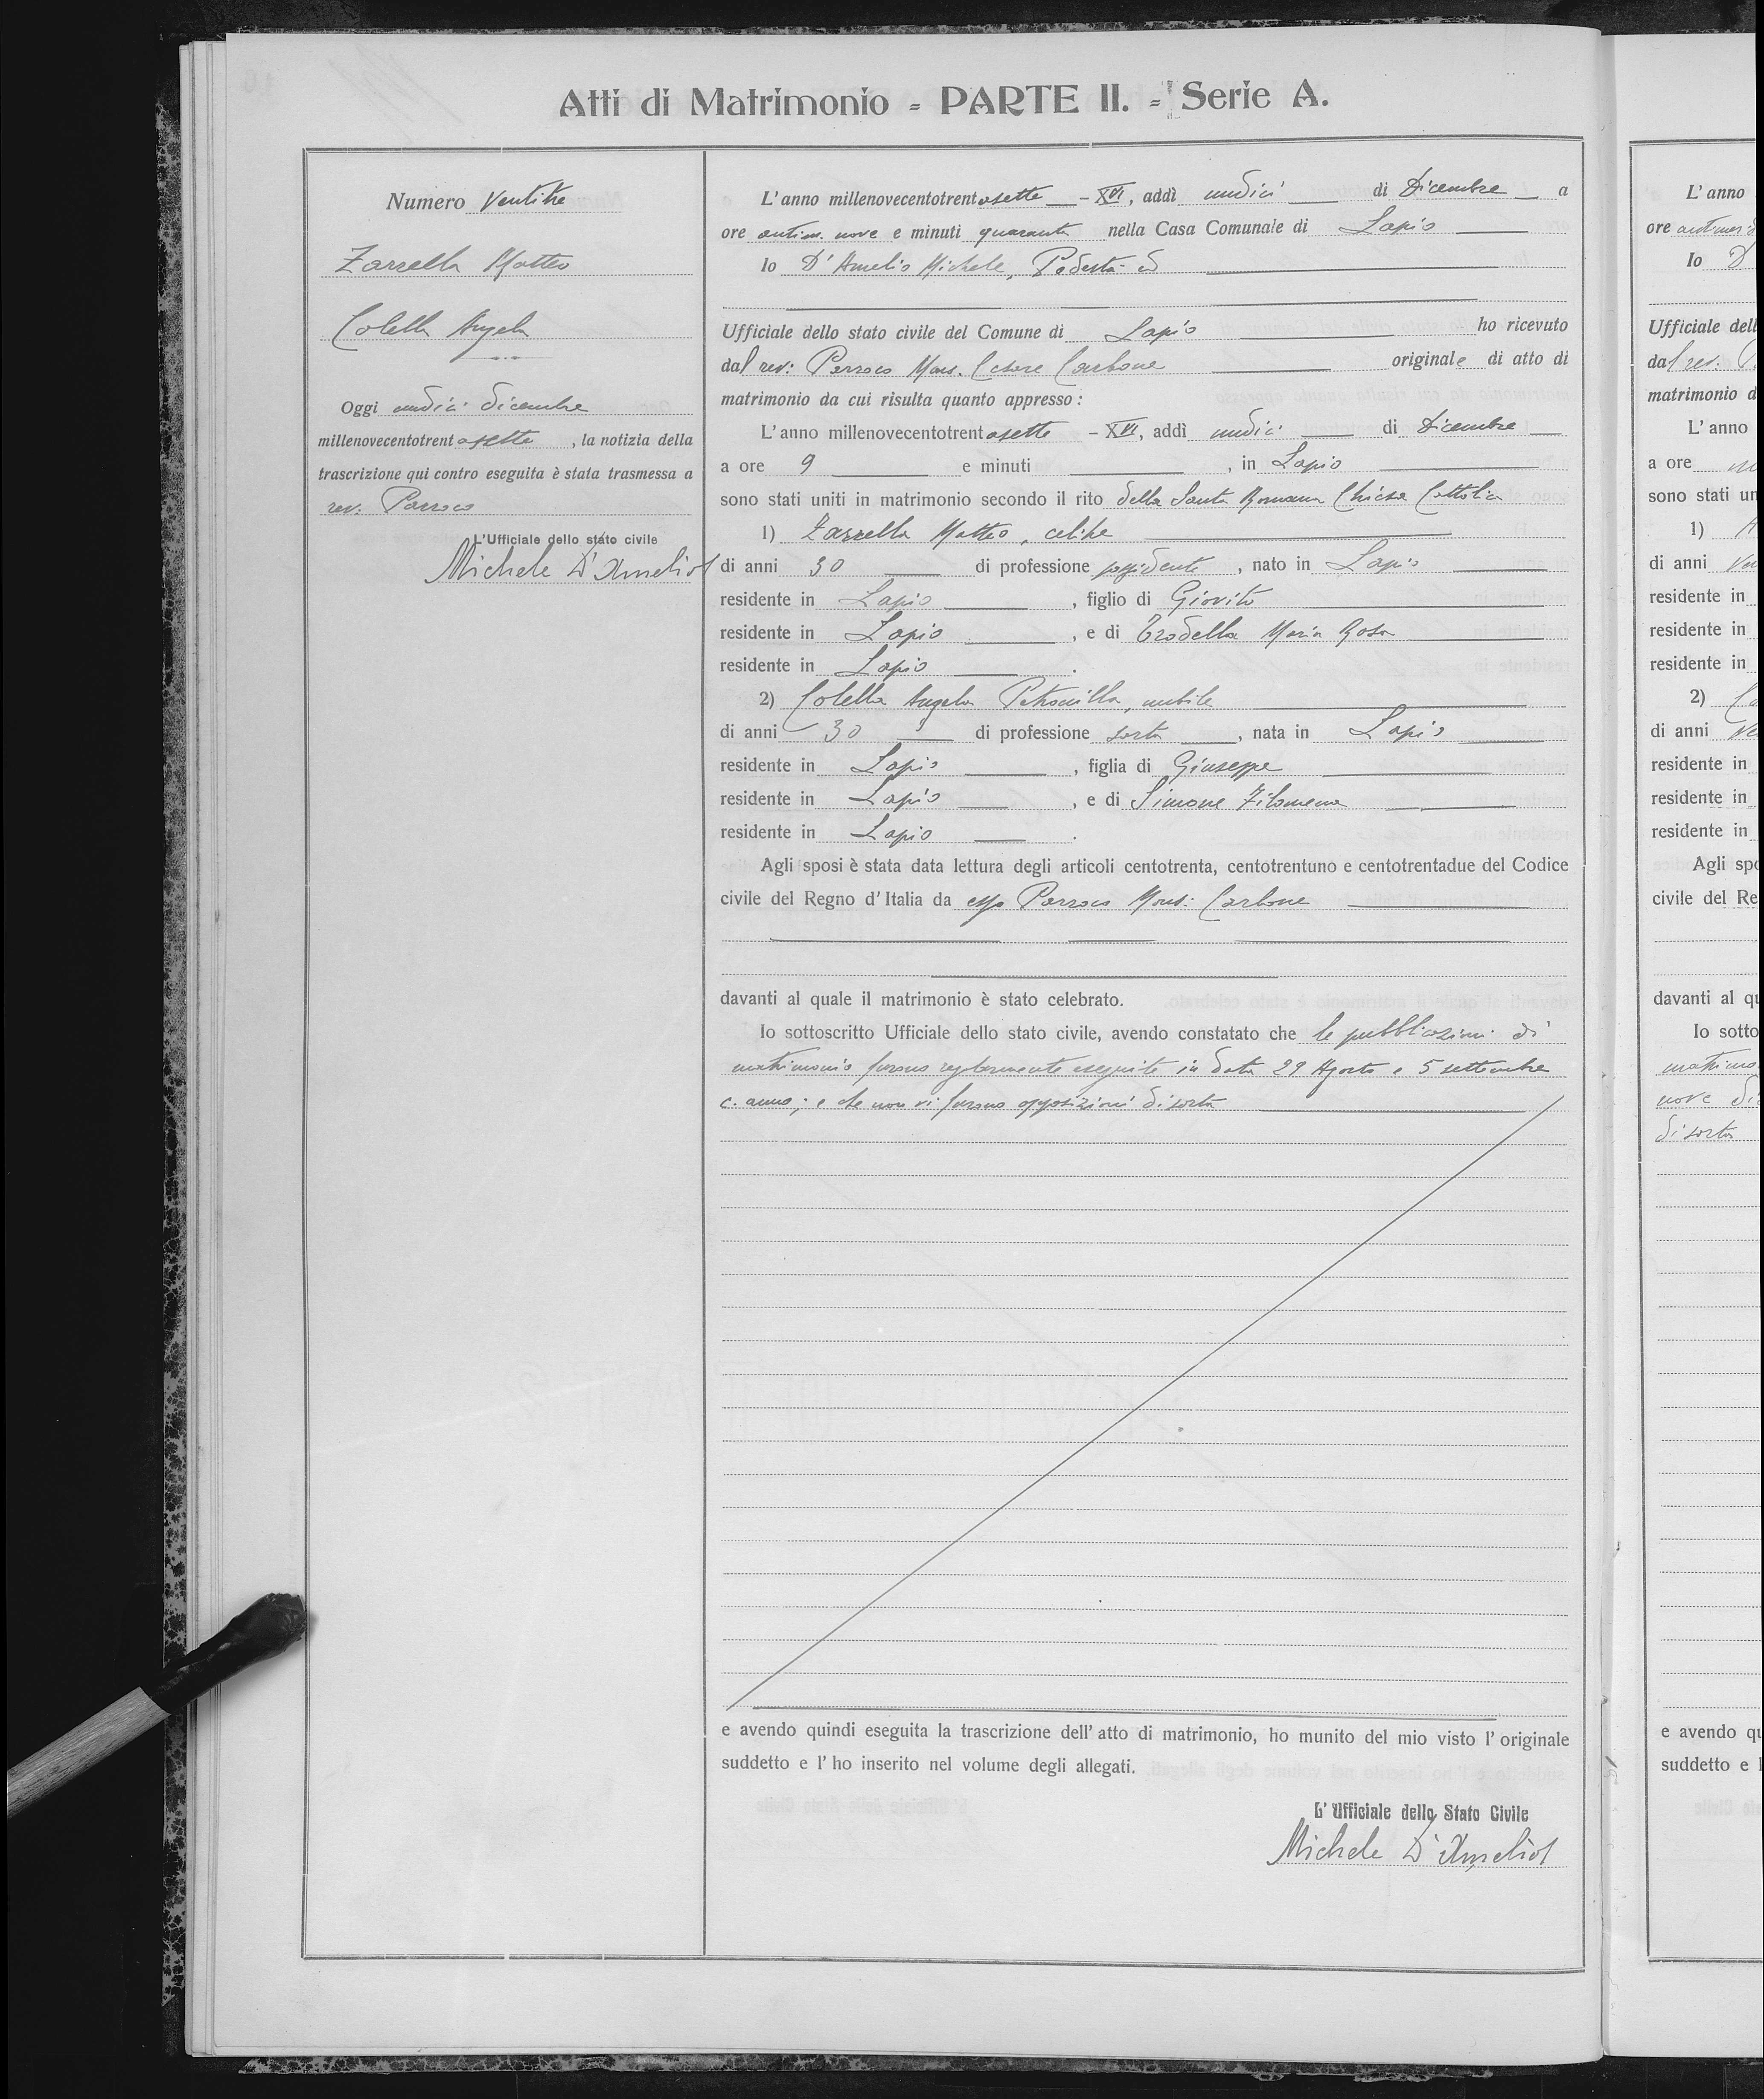 Atti di Matrimonio - PARTE II. - Serie A.
Numero Ventitre
Zarrella Matteo
Colella Angela
Oggi undici dicembre
millenovecentotrentasette, la notizia della
trascrizione qui contro eseguita è stata trasmessa a
rev. Parroco
L'Ufficiale dello stato civile
Michele D'Amelio
L'anno millenovecentotrentasette - XVI, addì undici di Dicembre a
ore antim. nove e minuti quaranta nella Casa Comunale di Lapio
Io D'Amelio Michele, Podestà ed
Ufficiale dello stato civile del Comune di Lapio ho ricevuto
dal rev: Parroco Mons. Cesare Carbone originale di atto di
matrimonio da cui risulta quanto appresso:
L'anno millenovecentotrentasette - XVI, addì undici di Dicembre
a ore 9 e minuti , in Lapio
sono stati uniti in matrimonio secondo il rito della Santa Romana Chiesa Cattolica
1) Zarrella Matteo, celibe
di anni 30 di professione possidente, nato in Lapio
residente in Lapio, figlio di Giovito
residente in Lapio, e di Trodella Maria Rosa
residente in Lapio.
2) Colella Angela Petronilla, nubile
di anni 30 di professione sarta, nata in Lapio
residente in Lapio, figlia di Giuseppe
residente in Lapio, e di Simone Filomena
residente in Lapio.
Agli sposi è stata data lettura degli articoli centotrenta, centotrentuno e centotrentadue del Codice
civile del Regno d'Italia da esso Parroco Mons: Carbone
davanti al quale il matrimonio è stato celebrato.
Io sottoscritto Ufficiale dello stato civile, avendo constatato che le pubblicazioni di
matrimonio furono regolarmente eseguite in data 29 Agosto e 5 settembre
c. anno; e che non vi furono opposizioni di sorta
e avendo quindi eseguita la trascrizione dell'atto di matrimonio, ho munito del mio visto l'originale
suddetto e l'ho inserito nel volume degli allegati.
L'Ufficiale dello Stato Civile
Michele D'Amelio
L'anno
ore antimerid
Io D'
Ufficiale dell
dal rev:
matrimonio d
L'anno
a ore
sono stati un
1)
di anni
residente in
residente in
residente in
2)
di anni
residente in
residente in
residente in
Agli spo
civile del Re
davanti al qu
Io sotto
matrimo
nove di
di sorta
e avendo qu
suddetto e l